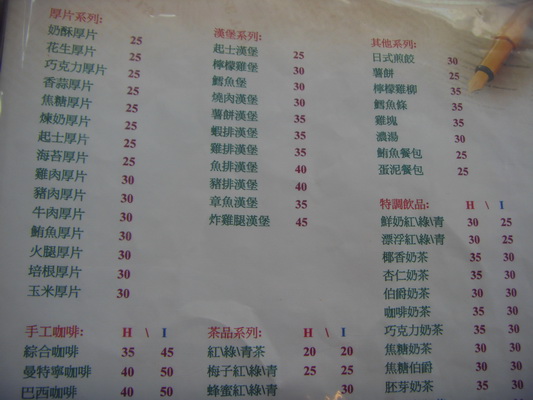 厚片系列:
奶酥厚片 25
花生厚片 25
巧克力厚片 25
香蒜厚片 25
焦糖厚片 25
煉奶厚片 25
起士厚片 25
海苔厚片 25
雞肉厚片 30
豬肉厚片 30
牛肉厚片 30
鮪魚厚片 30
火腿厚片 30
培根厚片 30
玉米厚片 30
漢堡系列:
起士漢堡 25
檸檬雞堡 30
鱈魚堡 30
燒肉漢堡 30
薯餅漢堡 35
蝦排漢堡 35
雞排漢堡 35
魚排漢堡 40
豬排漢堡 40
章魚漢堡 35
炸雞腿漢堡 45
其他系列:
日式煎餃 30
薯餅 25
檸檬雞柳 35
鱈魚條 35
雞塊 35
濃湯 30
鮪魚餐包 25
蛋泥餐包 25
特調飲品: H \ I
鮮奶紅\綠\青 30 25
漂浮紅\綠\青 30 25
椰香奶茶 35 30
杏仁奶茶 35 30
伯爵奶茶 35 30
咖啡奶茶 35 30
巧克力奶茶 35 30
焦糖奶茶 35 30
焦糖伯爵 35 30
胚芽奶茶 35 30
手工咖啡: H \ I
綜合咖啡 35 45
曼特寧咖啡 40 50
巴西咖啡 40 50
茶品系列: H \ I
紅\綠\青茶 20 20
梅子紅\綠\青 25 25
蜂蜜紅\綠\青 30